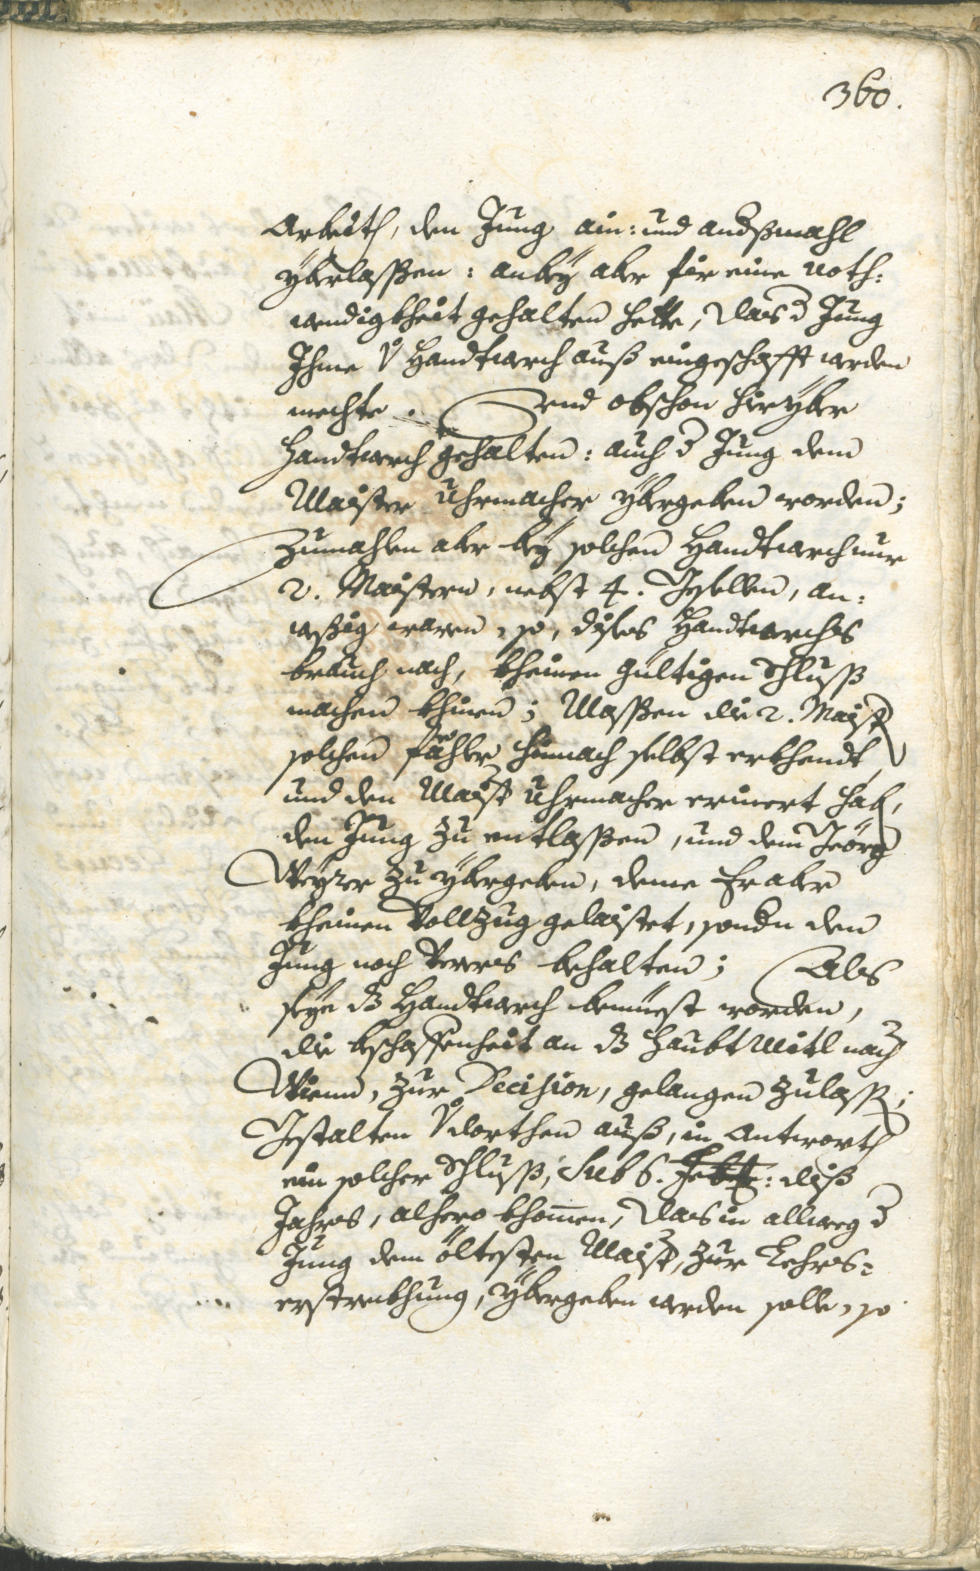 360.
Arbeith, den Jung ain: und andßmahl
yberlassen: anbey aber fir eine noth:
wendigkheit gehalten hette, das d Jung
Ihme V Handtwerch auß eingeschafft werden
mechte. Und obschon hieryber
Handtwerch gehalten: auch d Jung dem
Maister Uhrmacher ybergeben worden;
Zumahlen aber bey solchen Handtwerch nur
2. Maistern, nebst 4. Gsellen, an:
weßig waren, so, dises Handtwerchs
brauch nach, kheinen gültigen Schluß
machen khinen; Massen die 2. Maist
solchen fähler hernach selbst erkhendt,
und den Maist Uhrmacher erinert hab,
den Jung zu entlassen, und dem Geörg
zu ybergeben, deme Er aber
kheinen Vollzug gelaistet, sondn den
Jung noch behalten; Als
seye dz Handtwerch bemüest worden,
die beschaffenheit an dz HaubtMitl nach
Wienn, zur Decision, gelangen zulass;
Gestalten V dorthen auß, in Antworth
ein solcher Schluß, sub 6. Feb: diß
Jahrs, alhero khomen, das in allweg d
Jung dem öltesten Maist, zur Lehrs:
erstreckhung, ybergeben werden solle, so